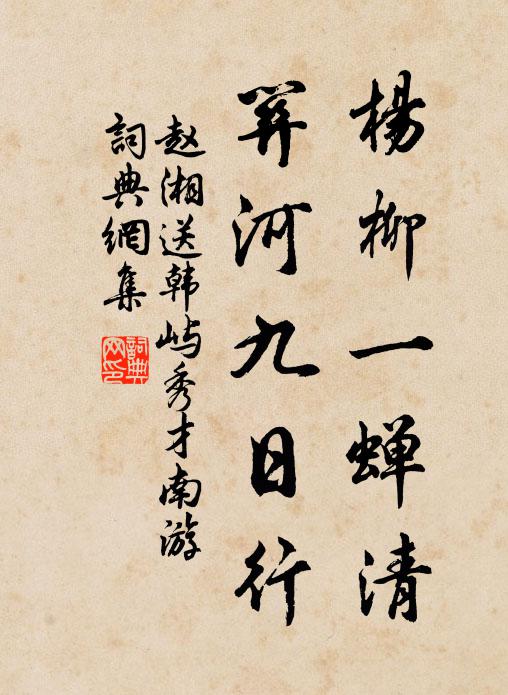 楊柳一蝉清
關河九日行
赵湘送韩屿秀才南游
詞典網集
詞典网印